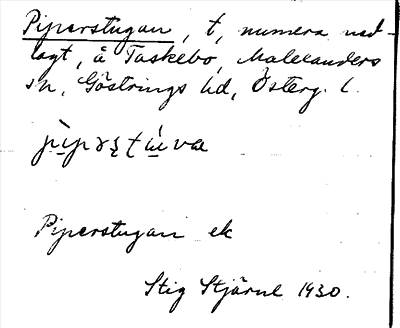 Piperstugan, t, numera ned-
lagt, å Taskebo, Malexanders
sn, Göstrings hd, Österg. l.
Piperstugan ek
Stig Stjärne 1930.